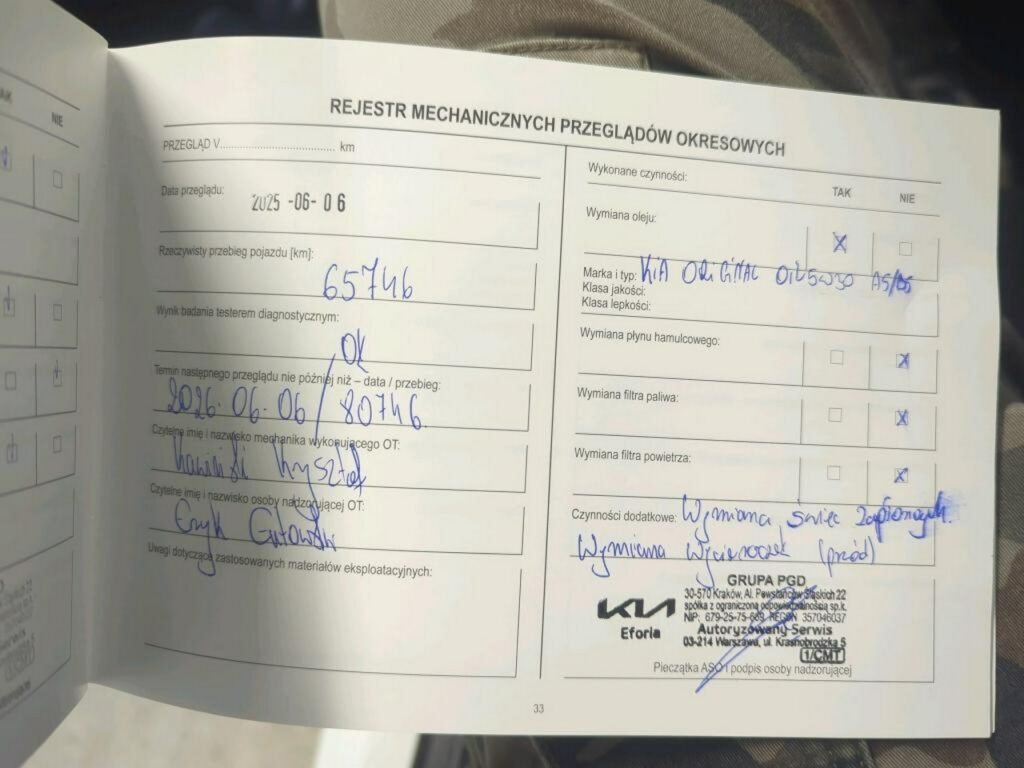 AK
NIE
REJESTR MECHANICZNYCH PRZEGLĄDÓW OKRESOWYCH
PRZEGLĄD V.................................... km
Data przeglądu:
2025-06-06
Rzeczywisty przebieg pojazdu [km]:
65746
Wynik badania testerem diagnostycznym:
OK
Termin następnego przeglądu nie później niż – data / przebieg:
2026.06.06 / 80746
Czytelne imię i nazwisko mechanika wykonującego OT:
Krysztof
Czytelne imię i nazwisko osoby nadzorującej OT:
Eryk Gutowski
Uwagi dotyczące zastosowanych materiałów eksploatacyjnych:
Wykonane czynności:
TAK NIE
Wymiana oleju:
Marka i typ: KIA ORIGINAL OIL 5W30 A5/B5
Klasa jakości:
Klasa lepkości:
Wymiana płynu hamulcowego:
Wymiana filtra paliwa:
Wymiana filtra powietrza:
Czynności dodatkowe: Wymiana świec zapłonowych.
Wymiana wycieraczek (przód)
GRUPA PGD
30-570 Kraków, Al. Powstańców Śląskich 22
spółka z ograniczoną odpowiedzialnością sp.k.
NIP: 679-25-75-663, REGON 357046037
KIA
Eforia
Autoryzowany Serwis
03-214 Warszawa, ul. Krasnobrodzka 5
1/CMT
Pieczątka ASO i podpis osoby nadzorującej
33